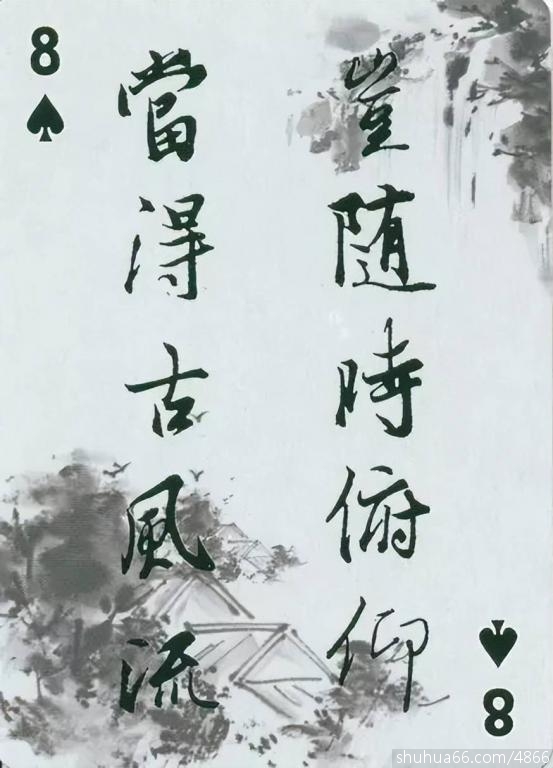 8
豈隨時俯仰
當得古風流
8
shuhua66.com/4866